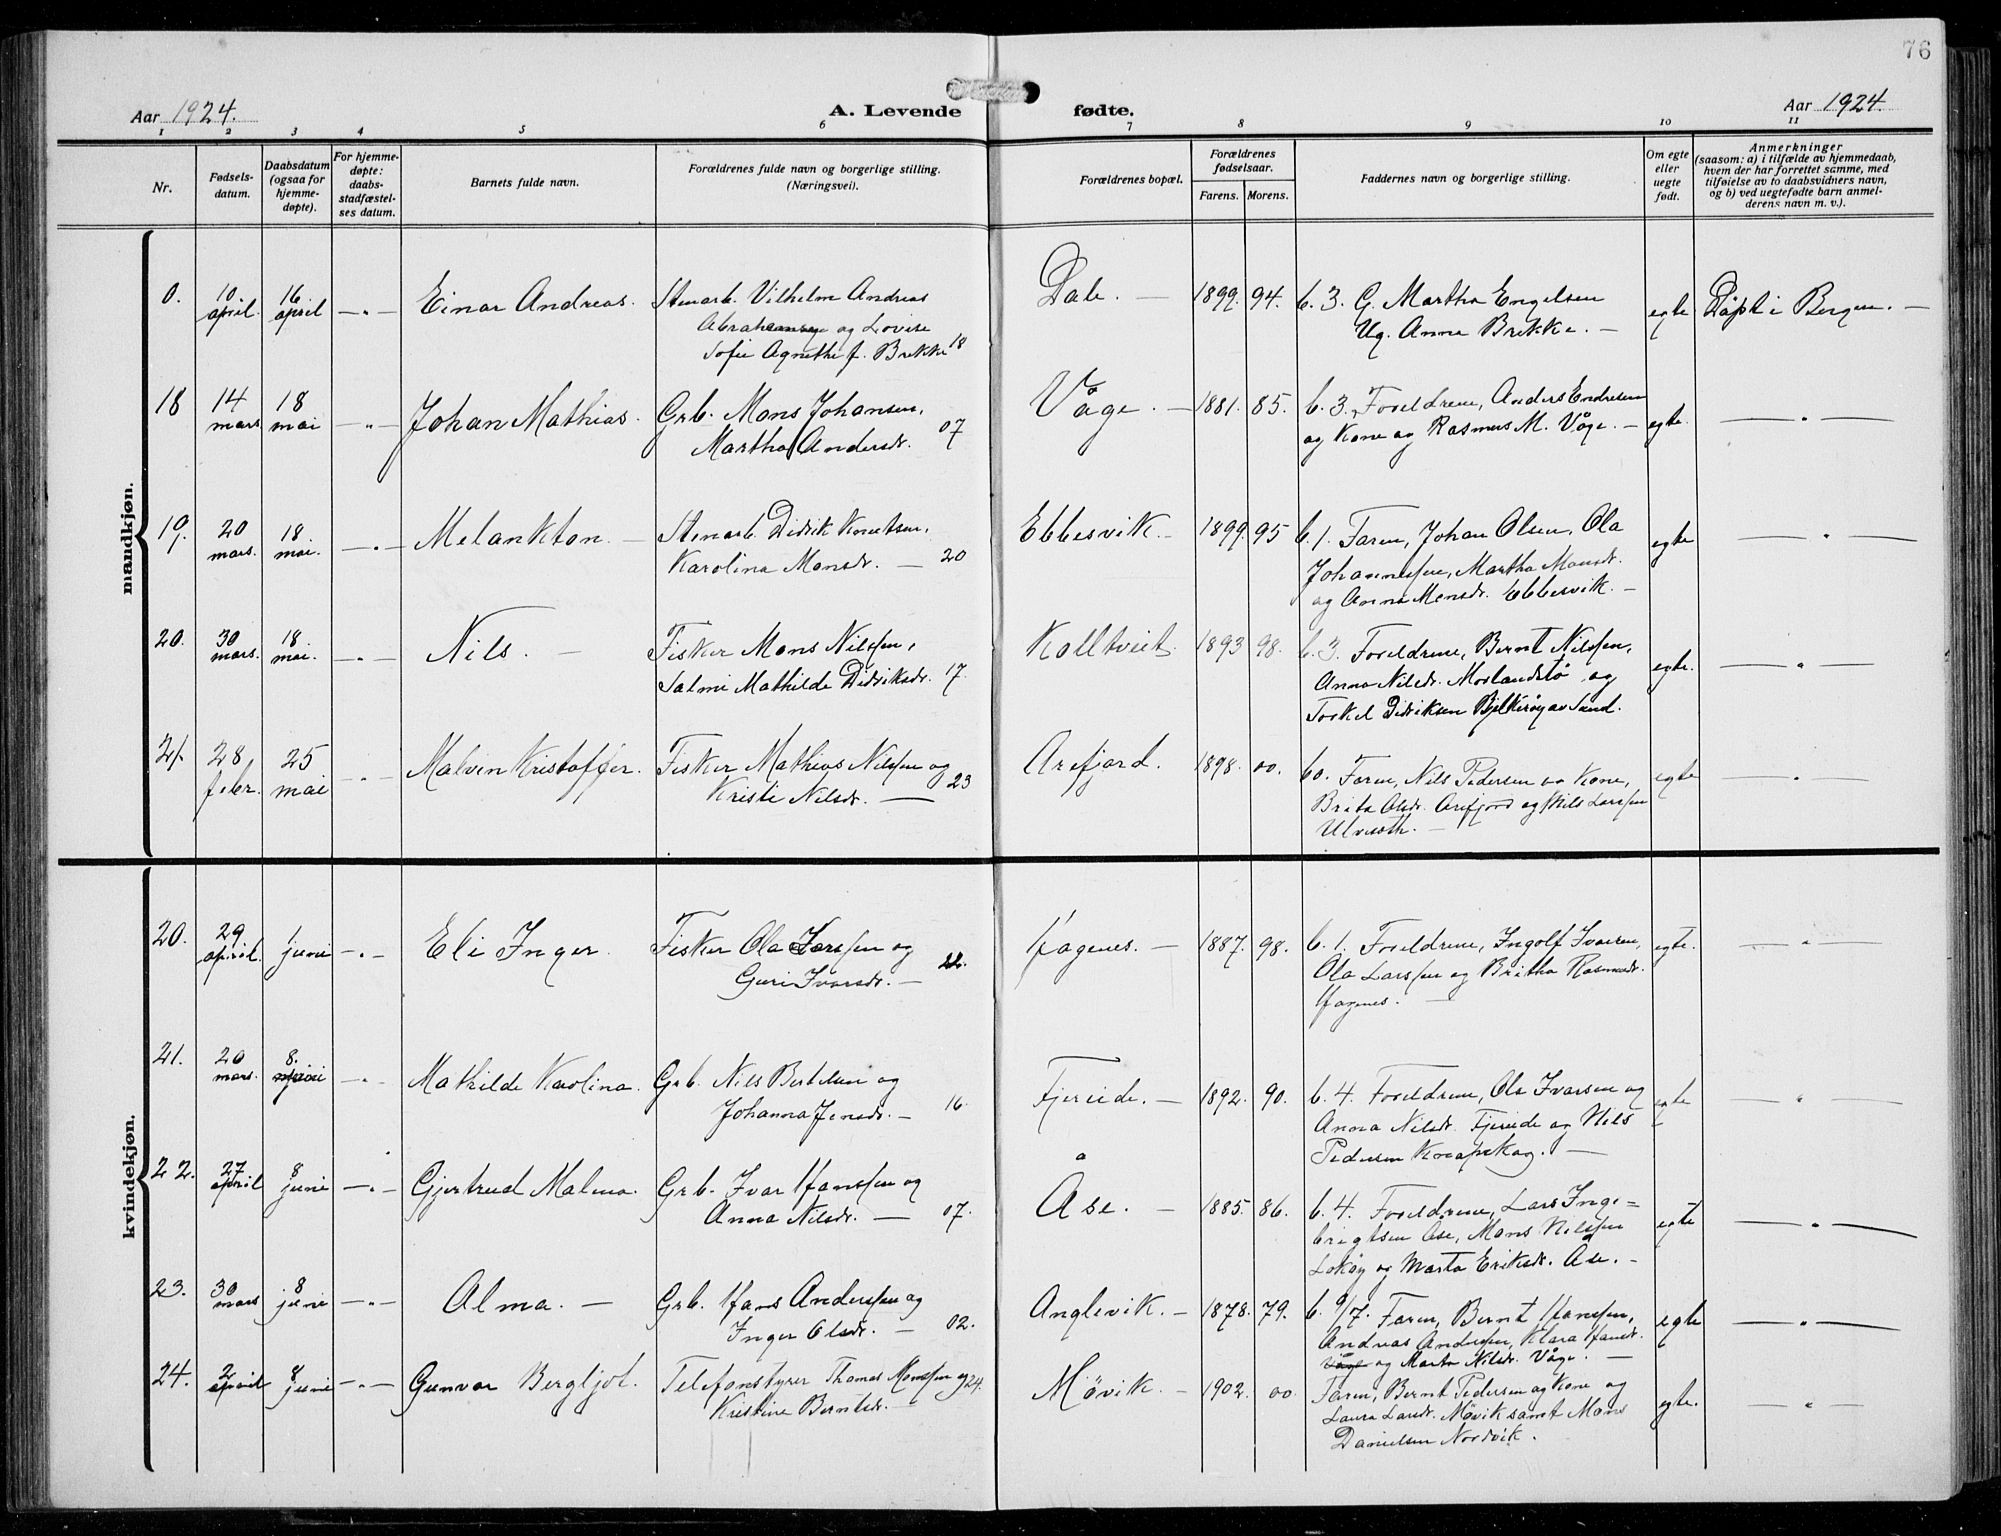 76
Aar 1924.
A. Levende fødte.
Aar 1924.
1 2 3 4 5 6 7 8 9 10 11
Nr.
Fødsels-
datum.
Daabsdatum
(ogsaa for
hjemme-
døpte).
For hjemme-
døpte:
daabs-
stadfæstel-
ses datum.
Barnets fulde navn.
Forældrenes fulde navn og borgerlige stilling.
(Næringsvei).
Forældrenes bopæl.
Forældrenes
fødselsaar.
Farens. Morens.
Faddernes navn og borgerlige stilling.
Om egte
eller
uegte
født.
Anmerkninger
(saasom: a) i tilfælde av hjemmedaab,
hvem der har forrettet samme, med
tilføielse av to daabsvidners navn,
og b) ved uegtefødte barn anmel-
derens navn m. v.).
mandkjøn.
0. 10 april 16 april —"— Einar Andreas. Stenarb. Vilhelm Andreas
Abrahamsen og Lovise
Sofie Agnethe f. Brekke 18
Dale. — 1899. 94. b. 3. G. Martha Engelsen
Ug. Anna Brekke. — egte Døpt i Bergen. —
18 14 mars 18 mai —"— Johan Mathias. Grb. Mons Johansen,
Martha Andersdr. 07
Våge. — 1881. 85. b. 3. Foreldrene, Anders Endresen
og Kone og Rasmus M. Våge. — egte. —"—
19. 20 mars. 18. mai. —"— Melankton. — Stenarb. Didrik Knutsen,
Karolina Monsdr. — 20
Ebbesvik. — 1899. 95 b. 1. Faren, Johan Olsen, Ola
Johannessen, Martha Monsdr.
og Anna Monsdr. Ebbesvik. — egte —"—
20. 30 mars. 18 mai. —"— Nils. — Fisker Mons Nilssen,
Salmi Mathilde Didriksdr. 17.
Kolltveit. 1893 98. b. 3. Foreldrene, Bernt Nilssen,
Anna Nilsdr. Morlandstø og
Torkel Didriksen Bjelkerøy av Sund. egte. —"—
21. 28 febr. 25 mai —"— Malvin Kristoffer. Fisker Mathias Nilssen og
Kristi Nilsdr. — 23
Arefjord. 1898. 00. b0. Faren, Nils Pedersen og Kone,
Brita Olsdr. Arefjord og Nils Larssen
Ulveseth. — egte —"—
kvindekjøn.
20. 29 april 1 juni —"— Eli Inger. Fisker Ola Larssen og
Guri Ivarsdr. —
Hagenes. — 1887. 98. b. 1. Foreldrene, Ingolf Iversen,
Ola Larssen og Britha Rasmusdr.
Hagenes. — egte. —"—
21. 20 mars. 8. juni —"— Mathilde Karolina. Grb. Nils Bertelsen og
Johanna Jensdr. — 16.
Fjereide. — 1892. 90. b. 4. Foreldrene, Ola Ivarsen og
Anna Nilsdr. Fjereide og Nils
Pedersen Knapskog. — egte —"—
22. 27 april 8 juni —"— Gjertrud Malma. Grb. Ivar Hanssen og
Anna Nilsdr. — 07.
Åse. — 1885. 86. b. 4. Foreldrene, Lars Inge=
brigtsen Åse, Mons Nilssen
Lokøy og Marta Eriksdr. Åse. — egte —"—
23. 30 mars 8 juni —"— Alma. — Grb. Hans Anderssen og
Inger Olsdr. — 02.
Anglevik. — 1878. 79. b. 9/7. Faren, Bernt Hanssen,
Andreas Andersen, Klara Hansdr.
Våge og Marta Nilsdr. Våge. — egte —"—
24. 2 april 8 juni —"— Gunvor Bergljot. Telefonstyrer Thomas Monssen og 24.
Kristine Berntsdr. —
Møvik. — 1902. 00. Faren, Bernt Pedersen og Kone og
Laura Larsdr. Møvik samt Mons
Danielsen Nordvik. egte. —"—